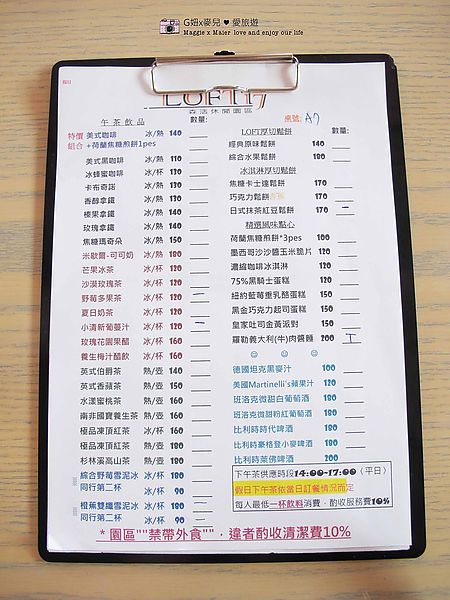 G妞x麥兒 ♥ 愛旅遊
Maggie x Maier love and enjoy our life
LOFT17
森活休閒園區
午茶飲品 數量:
特價組合 美式咖啡 冰/熱 140
+荷蘭焦糖煎餅1pes
美式黑咖啡 冰/熱 110
冰蜂蜜咖啡 冰/杯 130
卡布奇諾 冰/熱 130
香醇拿鐵 冰/熱 130
榛果拿鐵 冰/熱 140
玫瑰拿鐵 冰/熱 140
焦糖瑪奇朵 冰/熱 150
米歇爾-可可奶 冰/熱 180
芒果冰茶 冰/杯 120
沙漠玫瑰茶 冰/杯 120
野莓多果茶 冰/杯 120
夏日奶茶 冰/杯 120
小清新葡萄汁 冰/杯 120
玫瑰花園果醋 冰/杯 160
養生梅汁醋飲 冰/杯 160
英式伯爵茶 熱/壺 140
英式香蘋茶 熱/壺 150
水漾蜜桃茶 熱/壺 160
南非國寶養生茶 熱/壺 160
極品凍頂紅茶 冰/杯 160
極品凍頂紅茶 熱/壺 180
杉林溪高山茶 熱/壺 180
綜合野莓雪泥冰 冰/杯 180
同行第二杯 冰/杯 90
橙蕉雙纖雪泥冰 冰/杯 180
同行第二杯 冰/杯 90
桌號: A7
LOFT厚切鬆餅 數量:
經典原味鬆餅 140
綜合水果鬆餅 180
冰淇淋厚切鬆餅
焦糖卡士達鬆餅 170
巧克力鬆餅 170
日式抹茶紅豆鬆餅 170
精選風味點心
荷蘭焦糖煎餅*3pes 100
墨西哥沙沙醬玉米脆片 120
濃緻咖啡冰淇淋 120
75%黑騎士蛋糕 120
紐約藍莓重乳酪蛋糕 150
黑金巧克力起司蛋糕 150
皇家吐司金黃派對 150
羅勒義大利(牛)肉醬麵 200
德國坦克黑麥汁 100
美國Martinelli's蘋果汁 120
班洛克微甜白葡萄酒 180
班洛克微甜粉紅葡萄酒 180
比利時時代啤酒 180
比利時豪格登小麥啤酒 180
比利時萊佛啤酒 200
下午茶供應時段14:00-17:00 (平日)
假日下午茶依當日訂餐情況而定
每人最低一杯飲料消費,酌收服務費10%
*園區""禁帶外食"",違者酌收清潔費10%